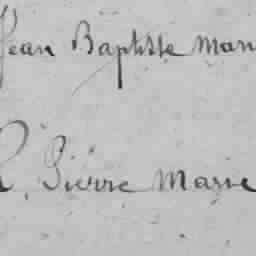 Jean Baptiste Mari
R. Pierre Marie